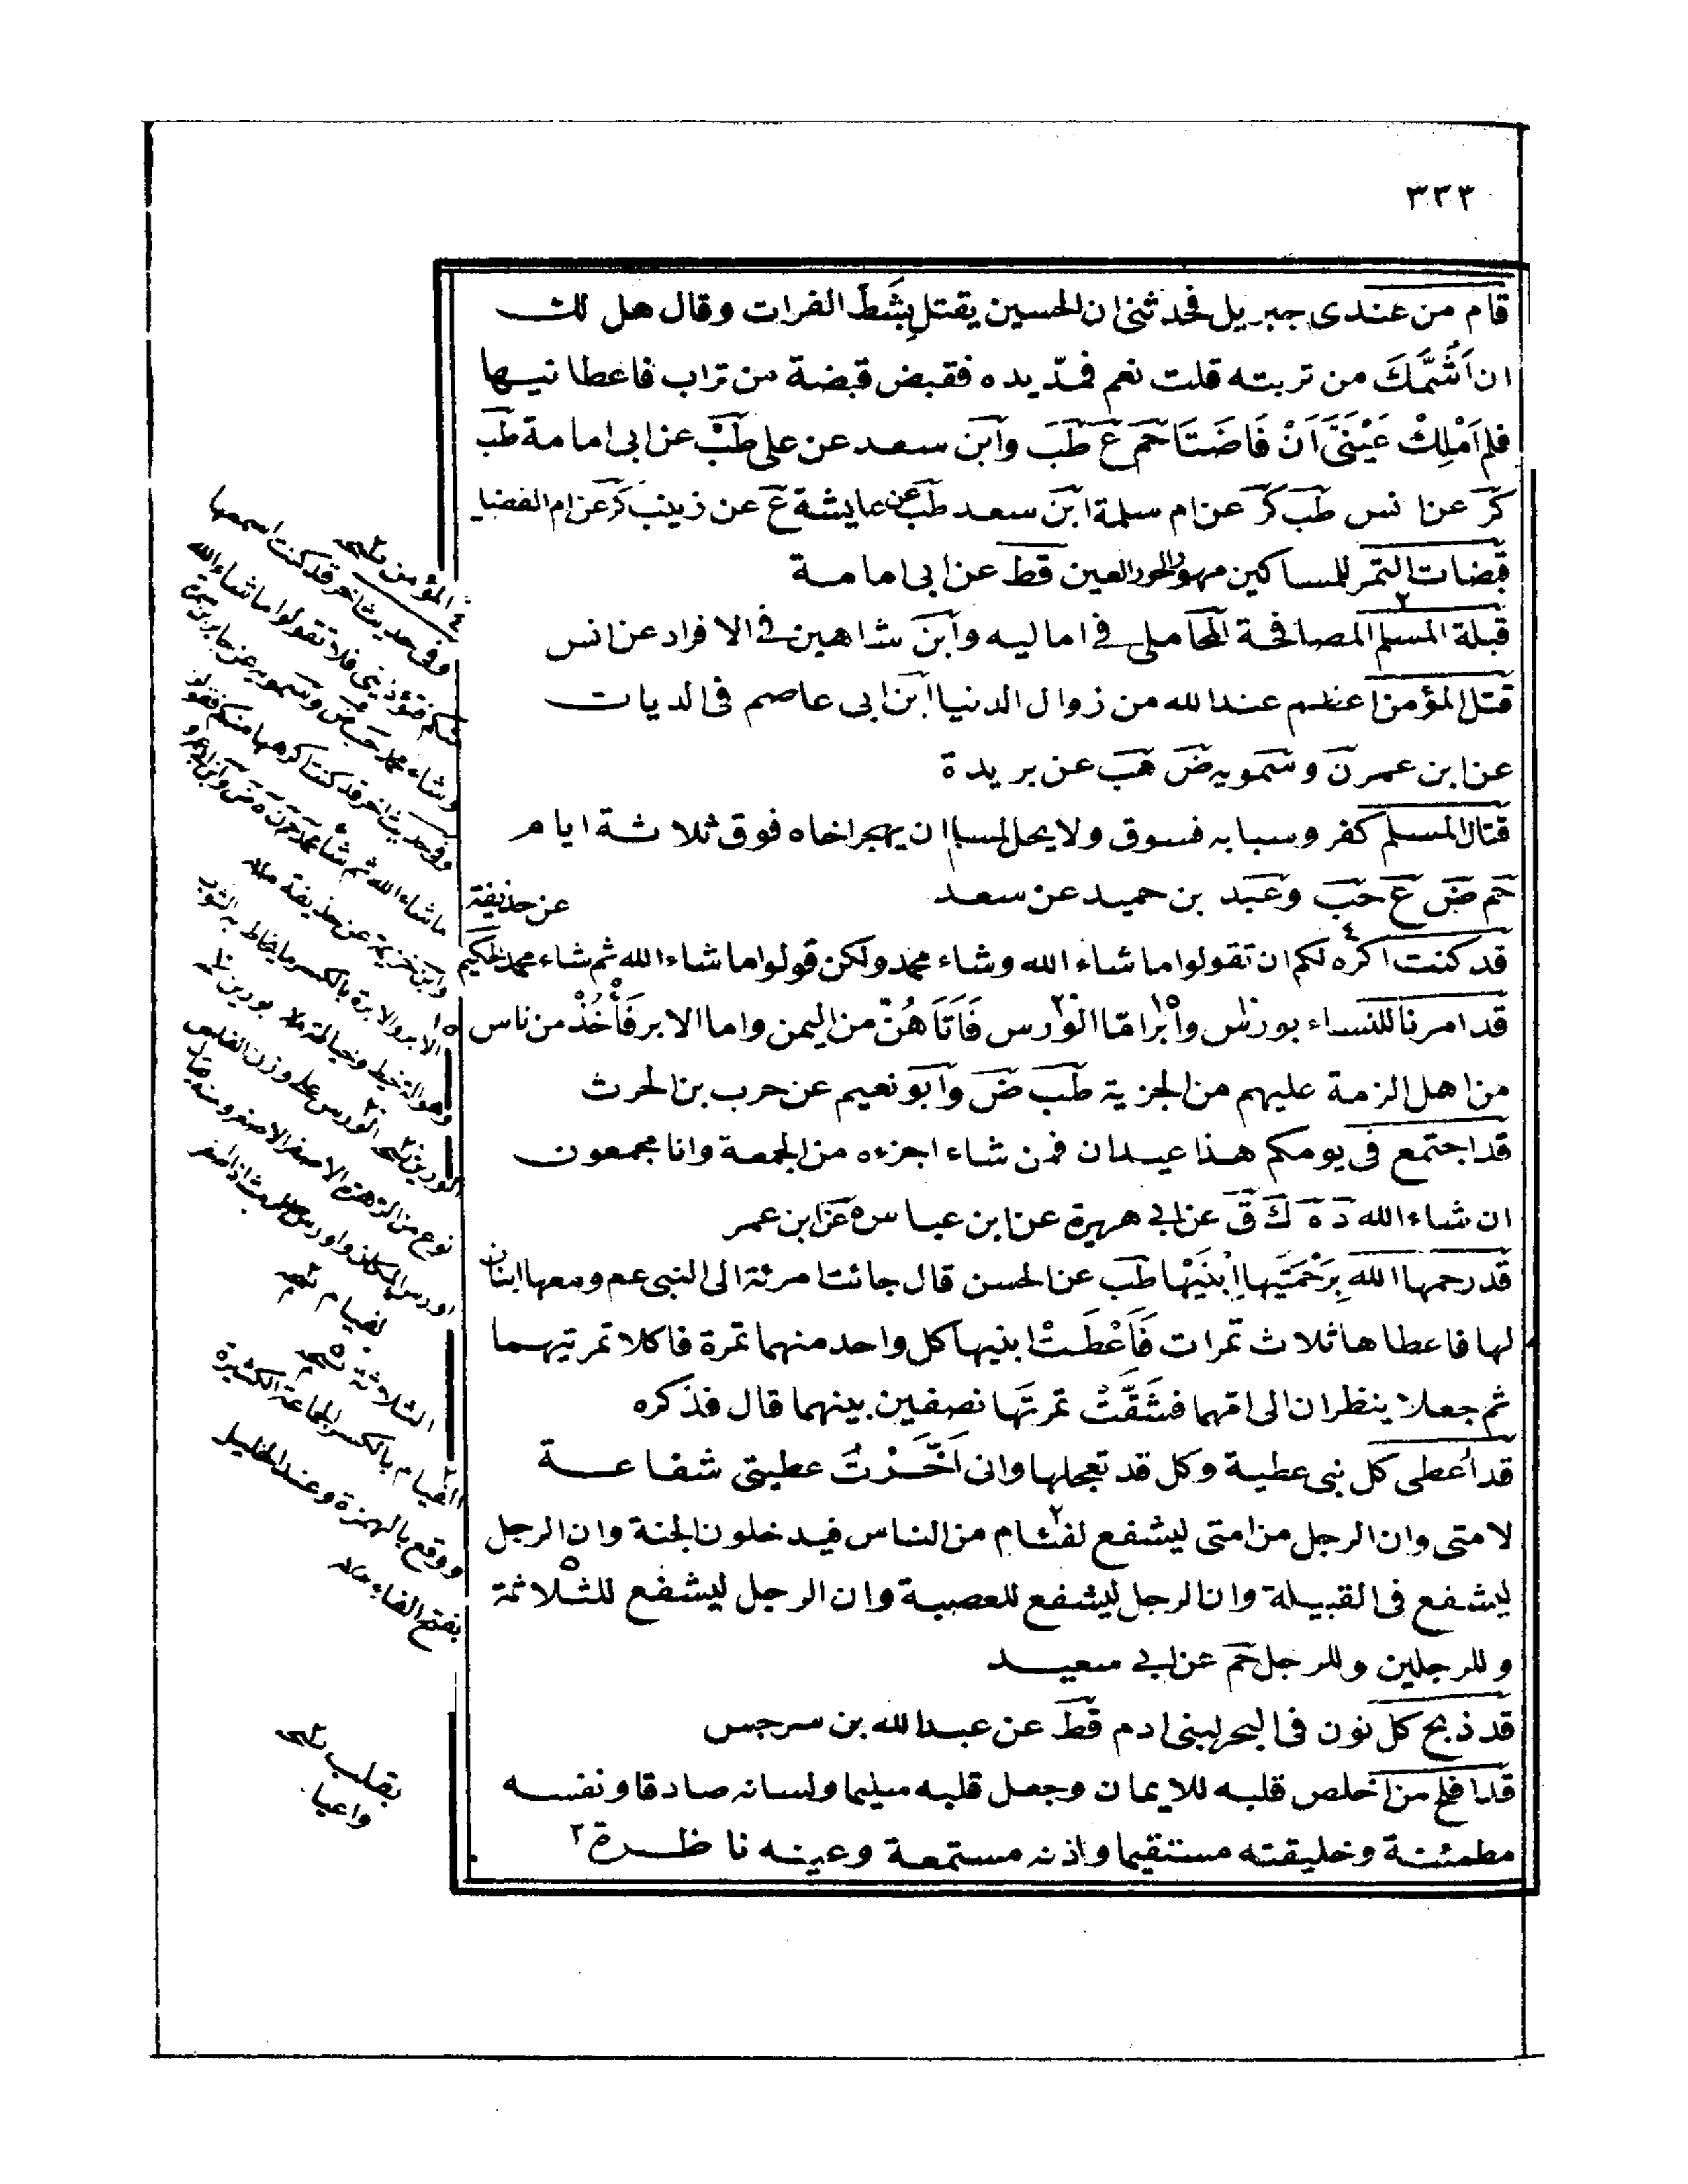 ٣٣٣
قام من عندى جبريل فحدثنى ان الحسين يقتل بِشَطِّ الفرات وقال هل لك
ان اُشَمِّكَ من تربته قلت نعم فمدّ يده فقبض قبضة من تراب فاعطانيها
فلم اَمْلِكْ عَيْنَىَّ اَنْ فَاضَتَا حم ع طب وابن سعد عن على طب عن ابى امامة طب
كر عن انس طب كر عن ام سلمة ابن سعد طب عن عايشة ع عن زينب كر عن ام الفضل
قبضات التمر للمساكين مهور الحور العين قط عن ابى امامة
قبلة المسلم ٢ المصافحة المحاملى فى اماليه وابن شاهين فى الافراد عن انس
قتل المؤمن اعظم عند الله من زوال الدنيا ابن ابى عاصم فى الديات
عن ابن عمر ن وسمويه ض هب عن بريدة
قتال المسلم كفر وسبابه فسوق ولا يحل لمسلم ان يهجر اخاه فوق ثلاثة ايام
حم ض ع حب وعبد بن حميد عن سعد
عن حذيفة
قد كنت اكره ٤ لكم ان تقولوا ما شاء الله وشاء محمد ولكن قولوا ما شاء الله ثم شاء محمد الحكيم
قد امرنا للنساء بورس وابر امّا الورس فَاَتَاهُنّ من اليمن واما الابر فَأْخُذْ من ناس
من اهل الزمة عليهم من الجزية طب ض وابو نعيم عن حرب بن الحرث
قد اجتمع فى يومكم هذا عيدان فمن شاء اجزءه من الجمعة وانا مجمعون
ان شاء الله د ه ك ق عن ابى هريرة عن ابن عباس ه عن ابن عمر
قد رحمها الله بِرَحْمَتِيْها اِبْنَيْها طب عن الحسن قال جائت امرئة الى النبى عم ومعها ابنان
لها فاعطاها ثلاث تمرات فَاَعْطَتْ ابنيها كل واحد منهما تمرة فاكلا تمرتيهما
ثم جعلا ينظران الى امّهما فشَقَّتْ تمرتَها نصفين بينهما قال فذكره
قد اُعطى كل نبى عطية وكل قد تعجلها وانى اَخَّرْتُ عطيتى شفاعة
لامتى وان الرجل من امتى ليشفع لفئام ٢ من الناس فيدخلون الجنة وان الرجل
ليشفع فى القبيلة وان الرجل ليشفع للعصبة وان الرجل ليشفع للثلاثة ٥
وللرجلين وللرجل حم عن ابى سعيد
قد ذبح كل نون فى البحر لبنى ادم قط عن عبد الله بن سرجس
قد افلح من اخلص قلبه للايمان وجعل قلبه سليما ولسانه صادقا ونفسه
مطمئنة وخليقته مستقيما واذنه مستمعة وعينه ناظرة ٢
٤ المؤمن
وفى حديث اخر قد كنت اسمعها
منكم فتؤذينى فلا تقولوا ما شاء الله
وشاء محمد حب ض وسمويه عن جابر بن سمرة
وفى حديث اخر قد كنت اكرهها منكم فقولوا
ما شاء الله ثم شاء محمد
وابن خزيمة عن حذيفة
الابر والابرة بالكسر ما يخاط به الثوب
الورس على وزن الفلس
نوع من الزهرة الاصفر
لفيام
الثلاثة ٥
الفيام بالكسر الجماعة الكثيرة
ووقع بالهمزة وعند الخليل
بفتح الفاء
بقلب
واعيا